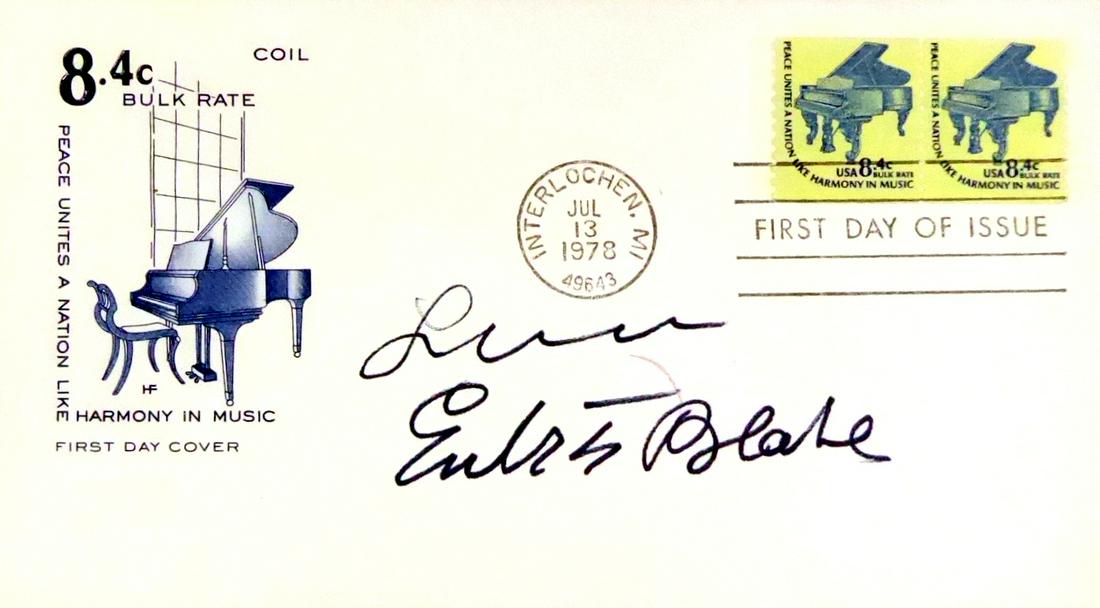 8.4c
COIL
BULK RATE
PEACE UNITES A NATION LIKE
HARMONY IN MUSIC
FIRST DAY COVER
HF
INTERLOCHEN, MI
JUL
13
1978
49643
PEACE UNITES A NATION LIKE HARMONY IN MUSIC
USA 8.4c
BULK RATE
PEACE UNITES A NATION LIKE HARMONY IN MUSIC
USA 8.4c
BULK RATE
FIRST DAY OF ISSUE
Blake